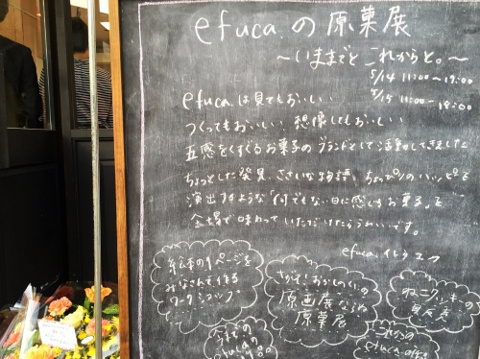 efuca.の原菓展
〜いままでと これからと。〜
5/14 11:00〜19:00
5/15 11:00〜18:00
efuca.は見てもおいしい
つくってもおいしい、想像してもおいしい
五感をくすぐるお菓子のブランドとして活動してきました
ちょっとした発見、ささいな物語、ちょっぴりのハッピーを
演出するような「何でもない日に感じるお菓子」を
会場で味わっていただけたらうれしいです。
efuca. イトウユカ
絵本の1ページを
みなさんで作る
ワークショップ
さがせ!おかしの
原画展ならぬ
原菓展
クッキーの
今までの
efuca.の
これからの
efuca.の